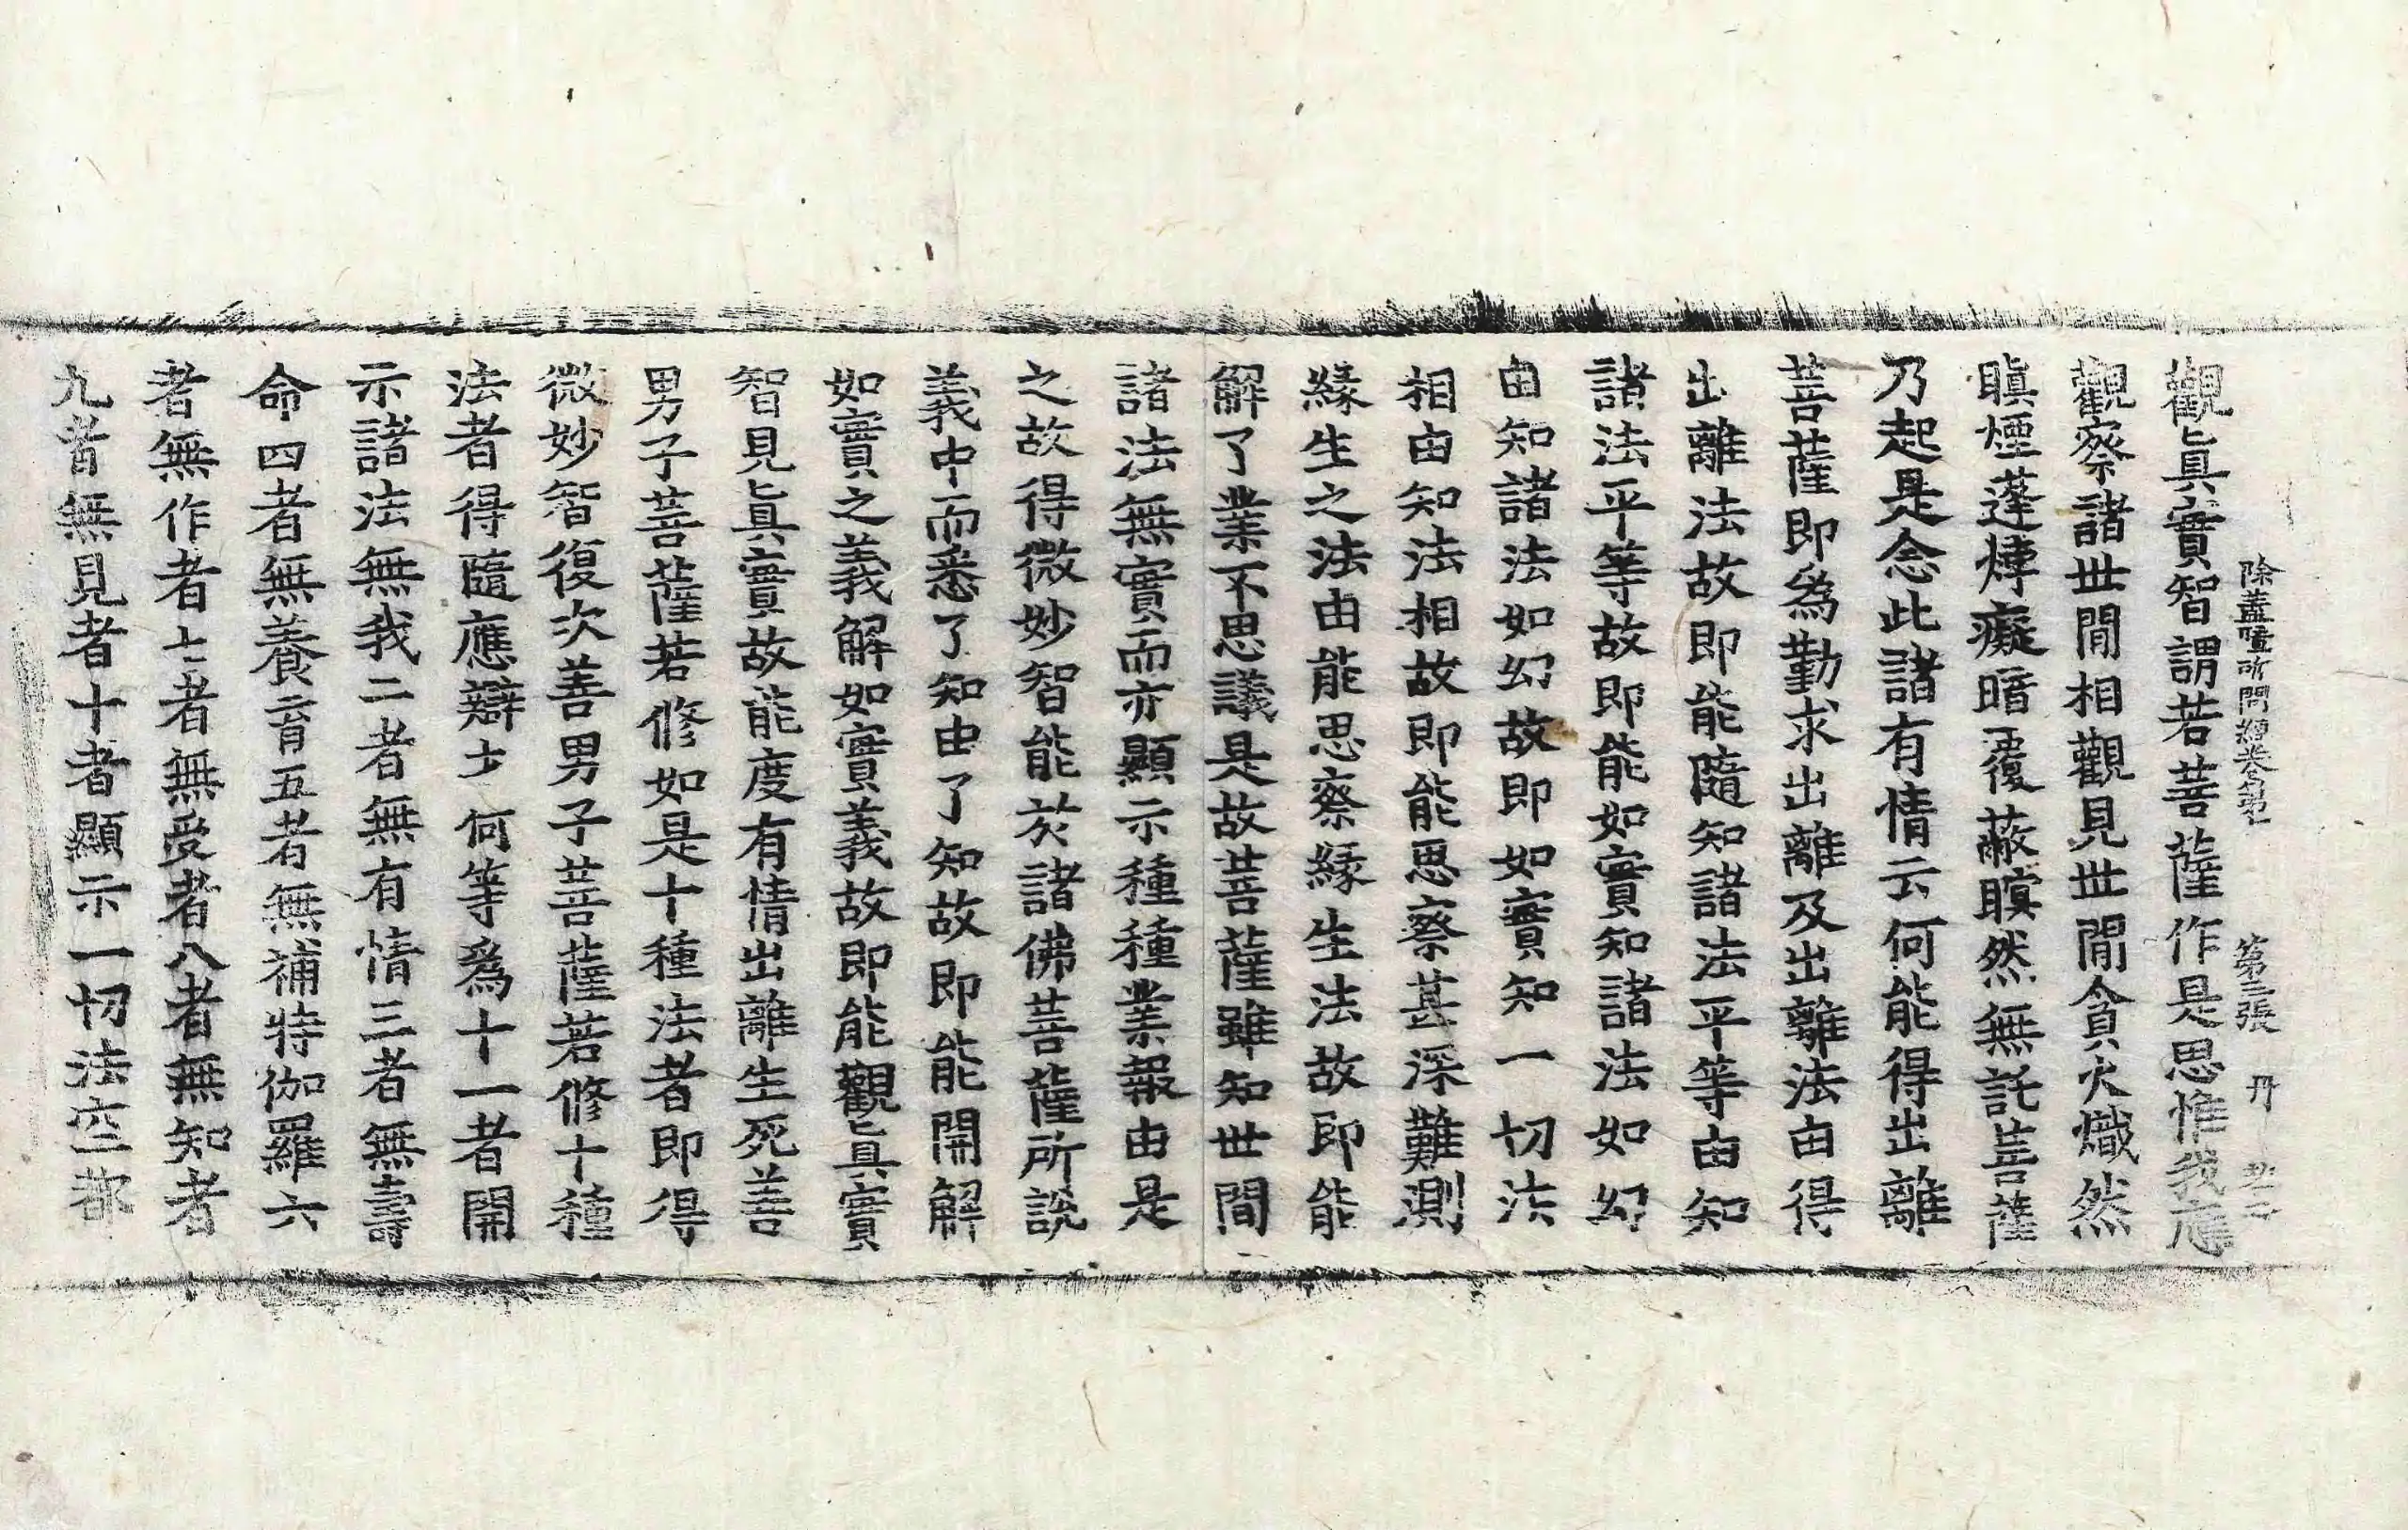 除蓋障所問經卷第七 第二張 丹
觀眞實智謂若菩薩作是思惟我應
觀察諸世間相觀見世間貪火熾然
瞋煙蓬㶿癡暗覆蔽瞑然無託菩薩
乃起是念此諸有情云何能得出離
菩薩即爲勤求出離及出離法由得
出離法故即能隨知諸法平等由知
諸法平等故即能如實知諸法如幻
由知諸法如幻故即如實知一切法
相由知法相故即能思察甚深難測
緣生之法由能思察緣生法故即能
解了業不思議是故菩薩雖知世間
諸法無實而亦顯示種種業報由是
之故得微妙智能於諸佛菩薩所說
義中而悉了知由了知故即能開解
如實之義解如實義故即能觀眞實
智見眞實故能度有情出離生死善
男子菩薩若修如是十種法者即得
微妙智復次善男子菩薩若修十種
法者得隨應辯才何等爲十一者開
示諸法無我二者無有情三者無壽
命四者無養育五者無補特伽羅六
者無作者七者無受者八者無知者
九者無見者十者顯示一切法空都